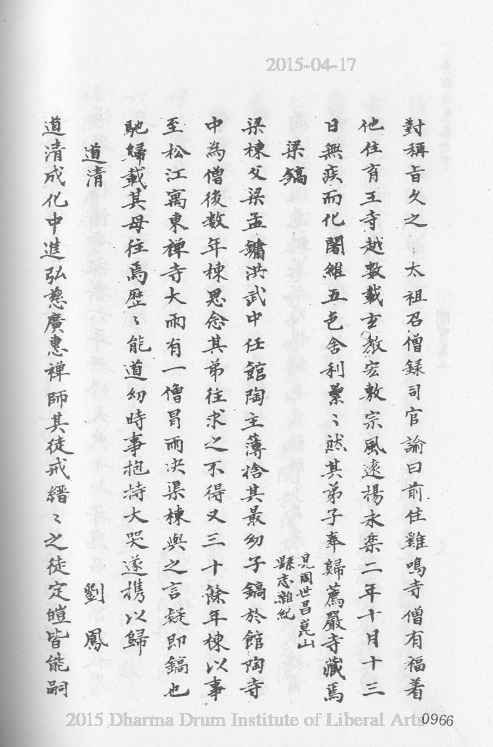 2015-04-17
對稱旨久之　太祖召僧錄司官諭曰前住雞鳴寺僧有福着
他住育王寺越數載玄教宏敷宗風遠揚永樂二年十月十三
日無疾而化闍維五色舍利纍〻然其弟子奉歸薦嚴寺藏焉
梁鎬　見周世昌崑山縣志雜紀
梁棟父梁孟鏞洪武中任館陶主薄捨其最幼子鎬於館陶寺
中為僧後数年棟思念其弟往求之不得又三十餘年棟以事
至松江寓東禅寺大雨有一僧冒雨决渠棟與之言疑即鎬也
馳歸載其母往焉歷〻能道幼時事抱持大哭遂携以歸
道清　劉鳳
道清成化中進弘慈廣惠禪師其徒戒縉〻之徒定皚皆能嗣
2015 Dharma Drum Institute of Liberal Arts
0966